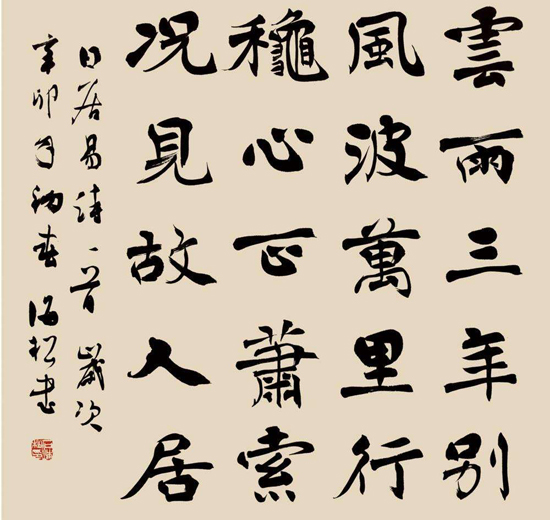 雲雨三年别
風波萬里行
龝心正蕭索
况見故人居
白居易诗一首 歲次
辛卯年初春 松书